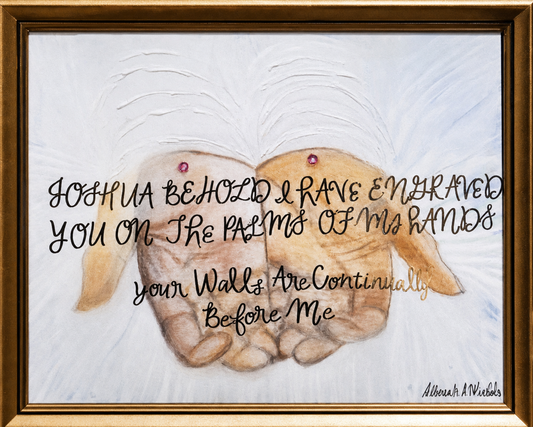 JOSHUA BEHOLD I HAVE ENGRAVED
YOU ON The PALMS OF MY HANDS
your Walls Are Continually
Before Me